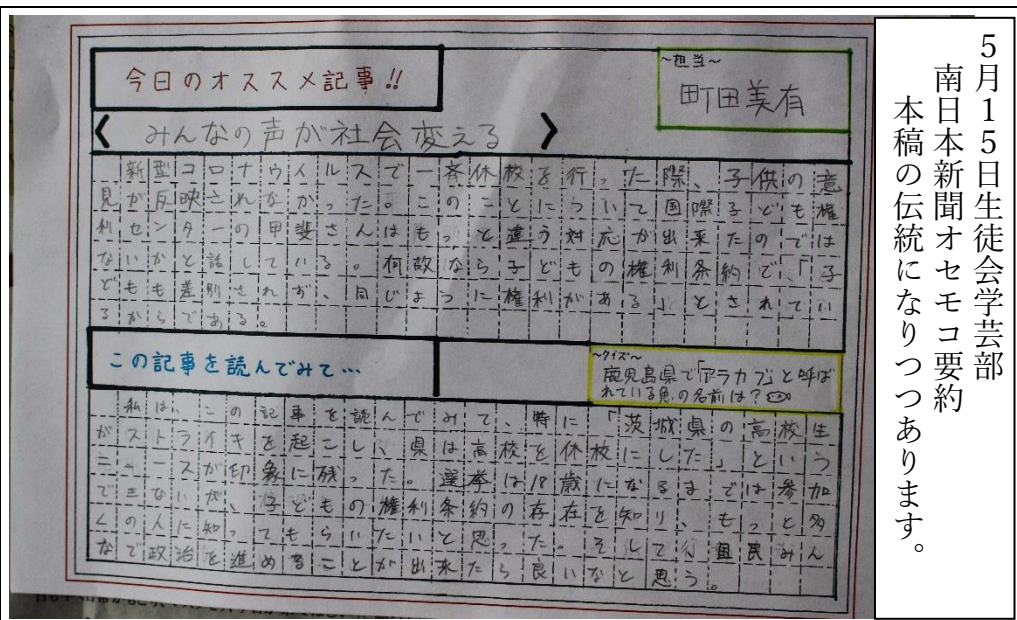 5月15日生徒会学芸部
南日本新聞オセモコ要約
本稿の伝統になりつつあります。
今日のオススメ記事!!
~担当~
町田美有
< みんなの声が社会変える >
新型コロナウイルスで一斉休校を行った際、子供の意
見が反映されなかった。このことについて国際子ども権
利センターの甲斐さんはもっと違う対応が出来たのでは
ないかと話している。何故なら子どもの権利条約で、「子
どもも差別されず、同じように権利がある」とされてい
るからである。
この記事を読んでみて…
~クイズ~
鹿児島県で「アラカブ」と呼ば
れている魚の名前は?
私は、この記事を読んでみて、特に「茨城県の高校生
がストライキを起こし、県は高校を休校にした」という
ニュースが印象に残った。選挙は18歳になるまでは参加
できないが、子どもの権利条約の存在を知り、もっと多
くの人に知ってもらいたいと思った。そして国民みん
なで政治を進めることが出来たら良いなと思う。